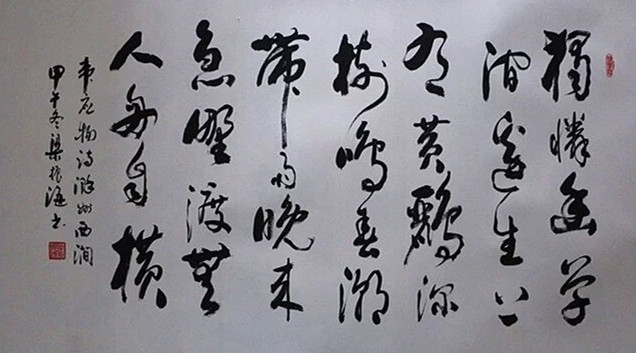 獨憐幽草
澗邊生上
有黄鸝深
樹鳴春潮
帶雨晚来
急野渡無
人舟自横
韋應物诗滁州西澗
甲午冬梁振海书